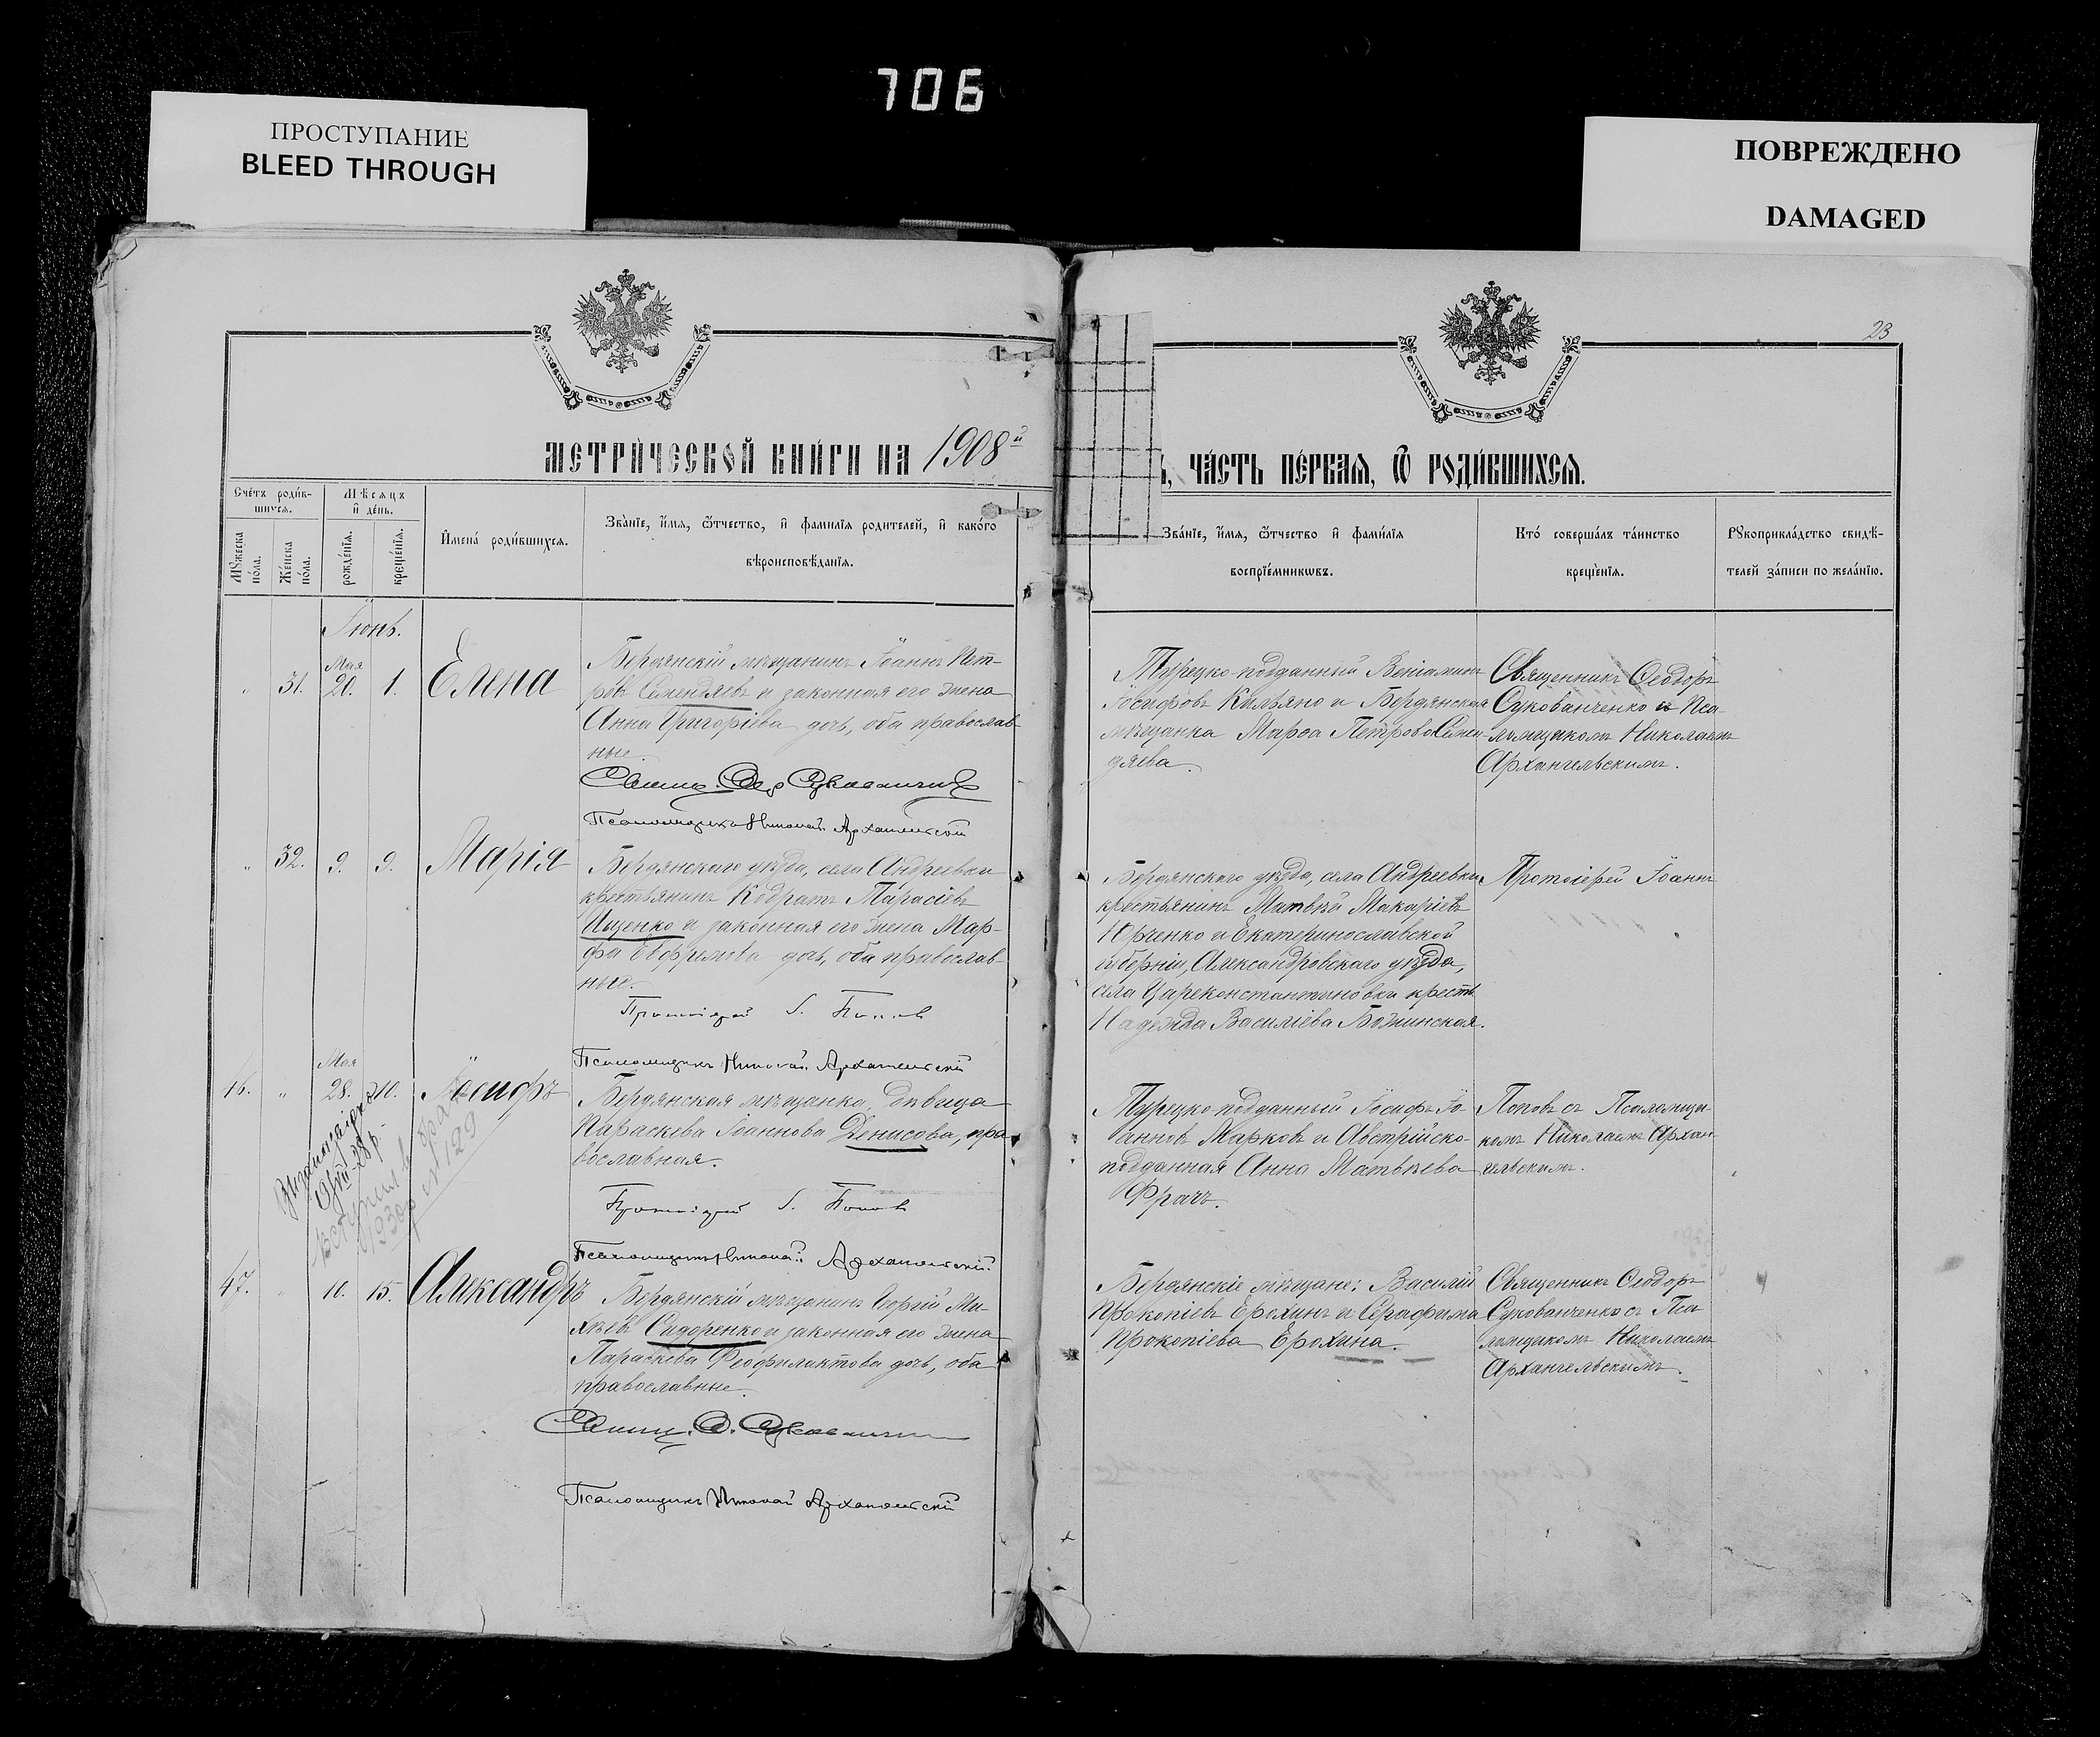 706
ПРОСТУПАНИЕ
BLEED THROUGH
ПОВРЕЖДЕНО
DAMAGED
23
МЕТРИЧЕСКОЙ КНИГИ НА 1908й
Ь, ЧАСТЬ ПЕРВАЯ, Ѿ РОДИВШИХСЯ.
Счетъ родив-
шихся.
Мѣсяцъ
и день.
Мужеска
пола.
Женска
пола.
рожденія.
крещенія.
Имена родившихся.
Званіе, имя, ѿтчество, и фамилія родителей, и какого
вѣроисповѣданія.
Званіе, имя, ѿтчество и фамилія
воспріемникѡвъ.
Кто совершалъ таинство
крещенія.
Рукоприкладство свидѣ-
телей записи по желанію.
Іюнь.
„ 31. Мая 20. 1. Елена
Бердянскій мѣщанинъ Іоаннъ Пет-
ровъ Семендяевъ и законная его жена
Анна Григоріева дочь, оба православ-
ные.
Псаломщикъ Николай Архангельскій
Турецко-подданный Веніаминъ
Іосифовъ Кильяно и Бердянская
мѣщанка Марѳа Петрова Семен-
дяева.
Священникъ Ѳеодоръ
Сукованченко и Пса-
ломщикомъ Николаемъ
Архангельскимъ.
„ 32. 9. 9. Марія
Бердянскаго уѣзда, села Андреевки
крестьянинъ Кодратъ Тарасіевъ
Ищенко и законная его жена Мар-
фа дочь, оба православ-
ные.
Протоіерей І. Поповъ
Псаломщикъ Николай Архангельскій
Бердянскаго уѣзда, села Андреевки
крестьянинъ Матвѣй Макаріевъ
Юрченко и Екатеринославской
губерніи, Александровскаго уѣзда,
села Цареконстантиновки крест.
Надежда Василіева Божинская.
Протоіерей Іоаннъ
46. „ Мая 28. 10. Іосифъ
Бердянская мѣщанка, дѣвица
Параскева Іоаннова Денисова, пра-
вославная.
Протоіерей І. Поповъ
Псаломщикъ Николай Архангельскій
Турецко-подданный Іосифъ Іо-
анновъ Марковъ и Австрійско-
подданная Анна Матвѣева
Фрачъ.
Поповъ съ Псаломщи-
комъ Николаемъ Архан-
гельскимъ.
№ 129
47. 10. 15. Александръ
Бердянскій мѣщанинъ Георгій Ми-
хѣевъ Сидоренко и законная его жена
Параскева Феофилактова дочь, оба
православные.
Псаломщикъ Николай Архангельскій
Бердянскіе мѣщане: Василій
Прокопіевъ Ерохинъ и Серафима
Прокопіева Ерохина.
Священникъ Ѳеодоръ
Сукованченко съ Пса-
ломщикомъ Николаемъ
Архангельскимъ.